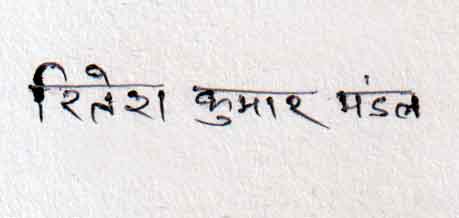 रितेश कुमार मंडल